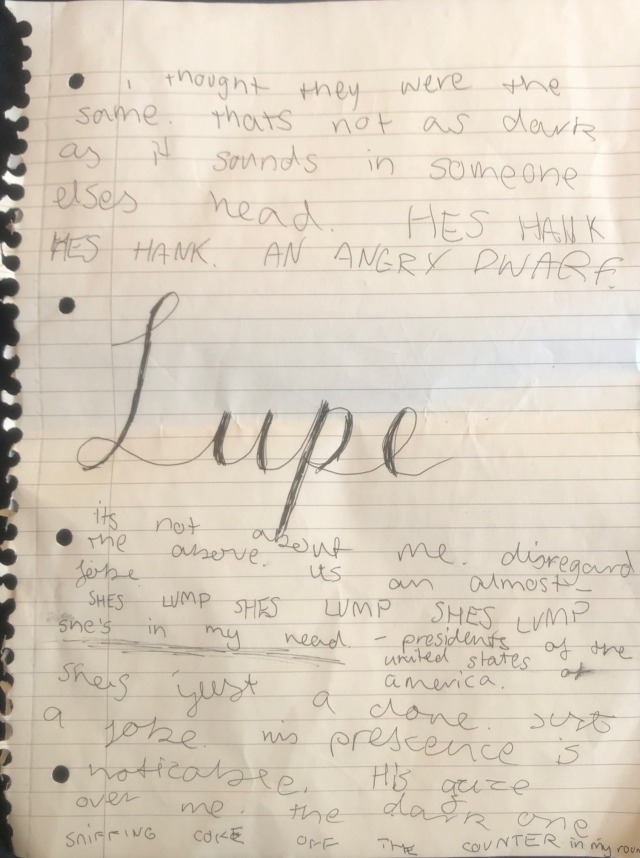 i thought they were the
same. thats not as dark
as it sounds in someone
elses head. HES HANK
HES HANK. AN ANGRY DWARF.
Lupe
its not about me. disregard
the above. its an almost-
joke.
SHES LUMP SHES LUMP SHES LUMP
she's in my head. - presidents of the
united states of
america.
shes just a clone. just
a joke. his prescence is
noticable. His gaze
over me. the dark one
SNIFFING COKE OFF THE COUNTER in my room